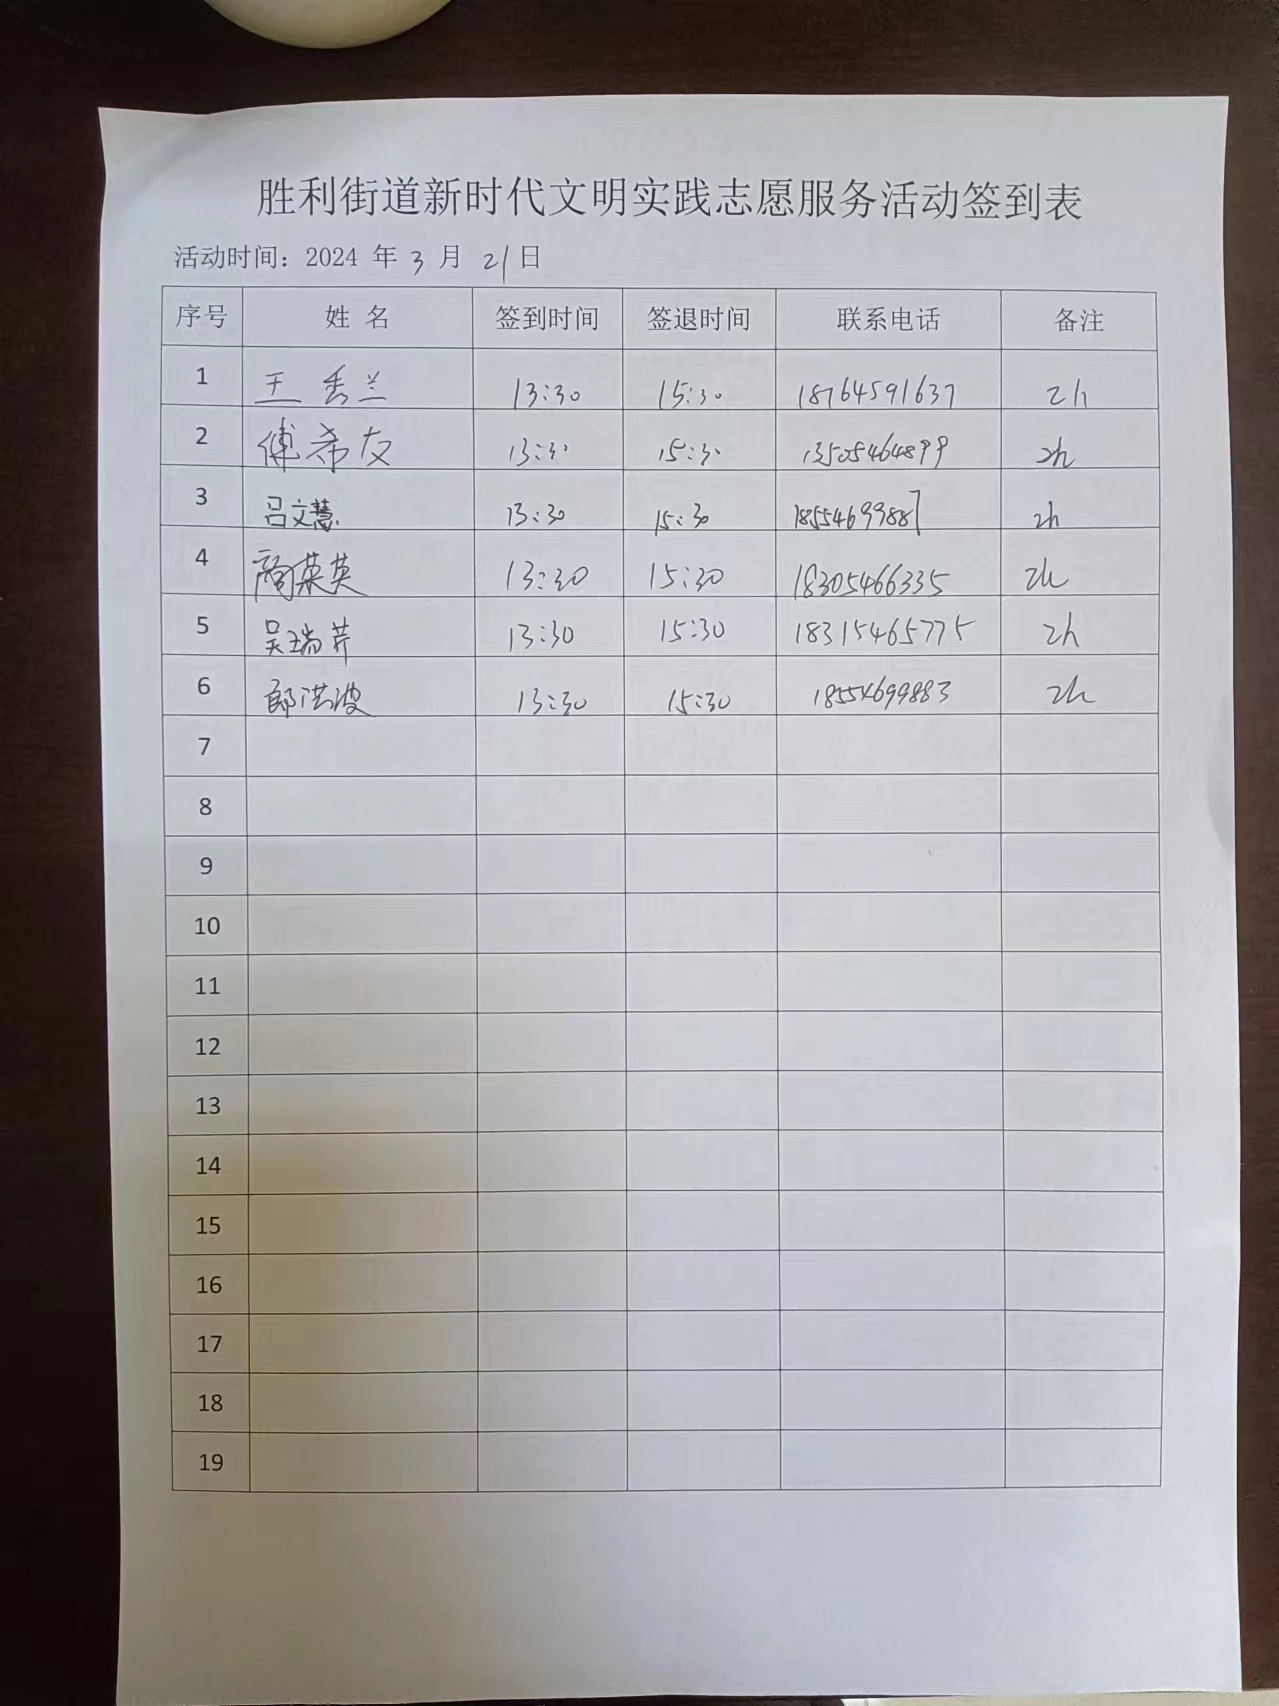 胜利街道新时代文明实践志愿服务活动签到表
活动时间：2024 年 3 月 21 日
序号 姓 名 签到时间 签退时间 联系电话 备注
1 王秀兰 13:30 15:30 18764591637 2h
2 傅希友 13:30 15:30 13505464899 2h
3 吕文慧 13:30 15:30 18554699887 2h
4 商荣英 13:30 15:30 18305466335 2h
5 吴瑞芹 13:30 15:30 18315465775 2h
6 郎洪波 13:30 15:30 18554699883 2h
7
8
9
10
11
12
13
14
15
16
17
18
19